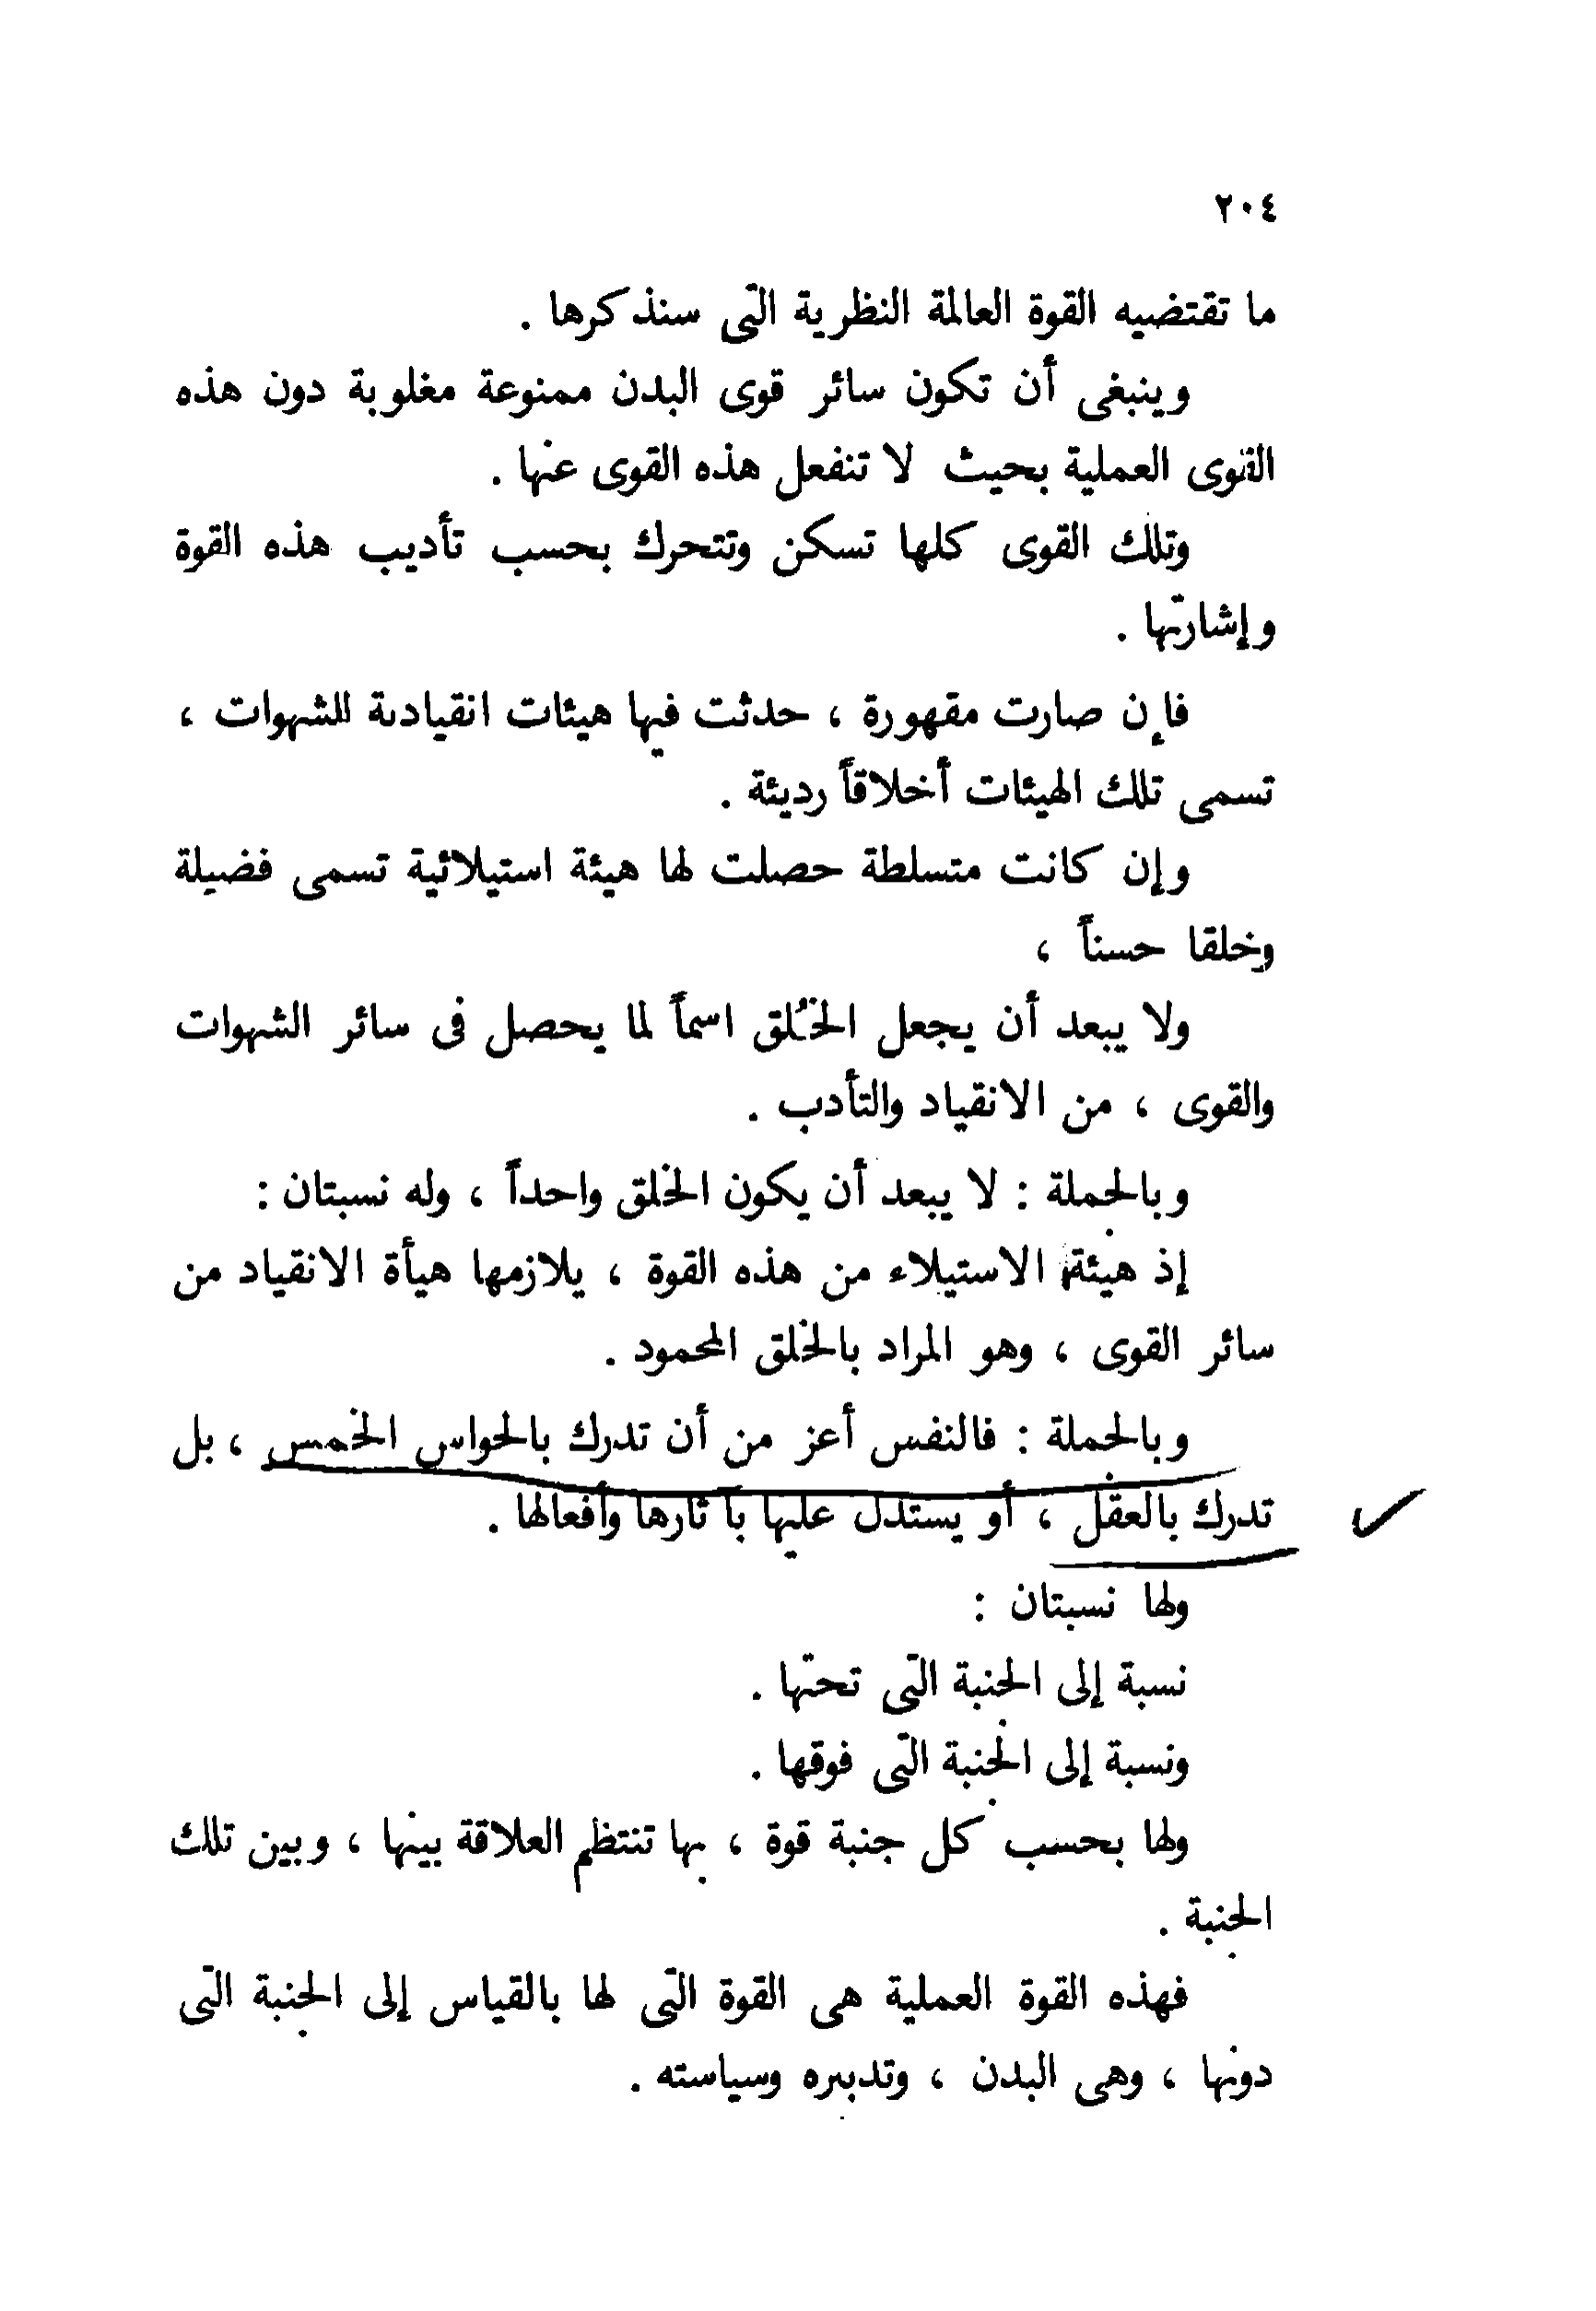 ٢٠٤
ما تقتضيه القوة العالمة النظرية التى سنذكرها .
وينبغى أن تكون سائر قوى البدن ممنوعة مغلوبة دون هذه
القوى العملية بحيث لا تنفعل هذه القوى عنها .
وتلك القوى كلها تسكن وتتحرك بحسب تأديب هذه القوة
وإشارتها .
فإن صارت مقهورة ، حدثت فيها هيئات انقيادية للشهوات ،
تسمى تلك الهيئات أخلاقاً رديئة .
وإن كانت متسلطة حصلت لها هيئة استيلائية تسمى فضيلة
وخلقا حسناً ،
ولا يبعد أن يجعل الخُلق اسماً لما يحصل فى سائر الشهوات
والقوى ، من الانقياد والتأدب .
وبالجملة : لا يبعد أن يكون الخلق واحداً ، وله نسبتان :
إذ هيئة الاستيلاء من هذه القوة ، يلازمها هيأة الانقياد من
سائر القوى ، وهو المراد بالخلق المحمود .
وبالجملة : فالنفس أعز من أن تدرك بالحواس الخمس ، بل
تدرك بالعقل ، أو يستدل عليها بآثارها وأفعالها .
ولها نسبتان :
نسبة إلى الجنبة التى تحتها .
ونسبة إلى الجنبة التى فوقها .
ولها بحسب كل جنبة قوة ، بها تنتظم العلاقة بينها ، وبين تلك
الجنبة .
فهذه القوة العملية هى القوة التى لها بالقياس إلى الجنبة التى
دونها ، وهى البدن ، وتدبيره وسياسته .